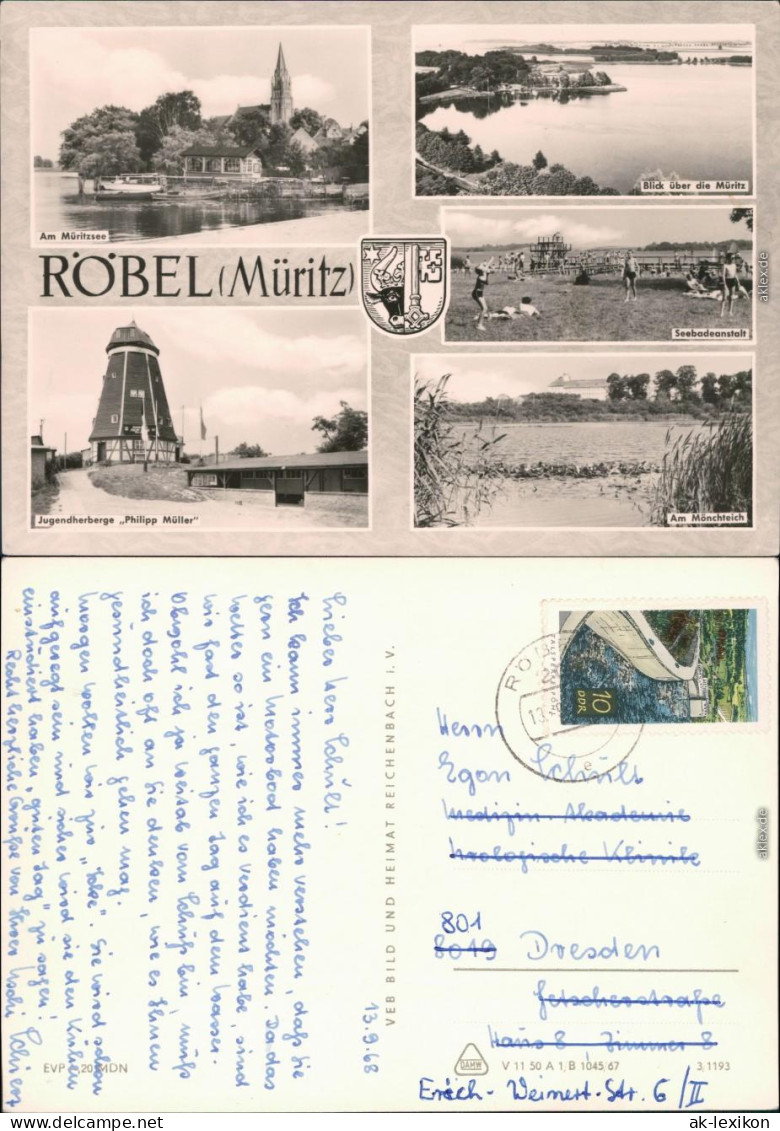 Am Müritzsee
Blick über die Müritz
RÖBEL (Müritz)
Seebadeanstalt
Jugendherberge „Philipp Müller"
Am Mönchteich
aklex.de
13.9.68
Lieber Herr Schult!
Ich kann immer mehr verstehen, daß Sie
gern ein Motorboot haben möchten. Da das
Wetter so ist, wie ich es verdient habe, sind
wir fast den ganzen Tag auf dem Wasser.
Obwohl ich ja weitab vom Schuß bin, muß
ich doch oft an Sie denken, wie es Ihnen
gesundheitlich gehen mag.
Morgen wollen wir zur
aufgeregt sein und sicher wird sie den Kühen
einstudiert haben, „guten Tag" zu sagen!
Recht herzliche Grüße von Ihrer
VEB BILD UND HEIMAT REICHENBACH i. V.
RÖ
13.
e
10
DDR
Herrn
Egon Schult
Medizin. Akademie
Urologische Klinik
801
8019 Dresden
Fetscherstraße
Haus 8 Zimmer 8
Erich-Weinert-Str. 6/II
EVP -,20 MDN
DAMW
V 11 50 A 1, B 1045/67
3,1193
aklex.de
ak-lexikon